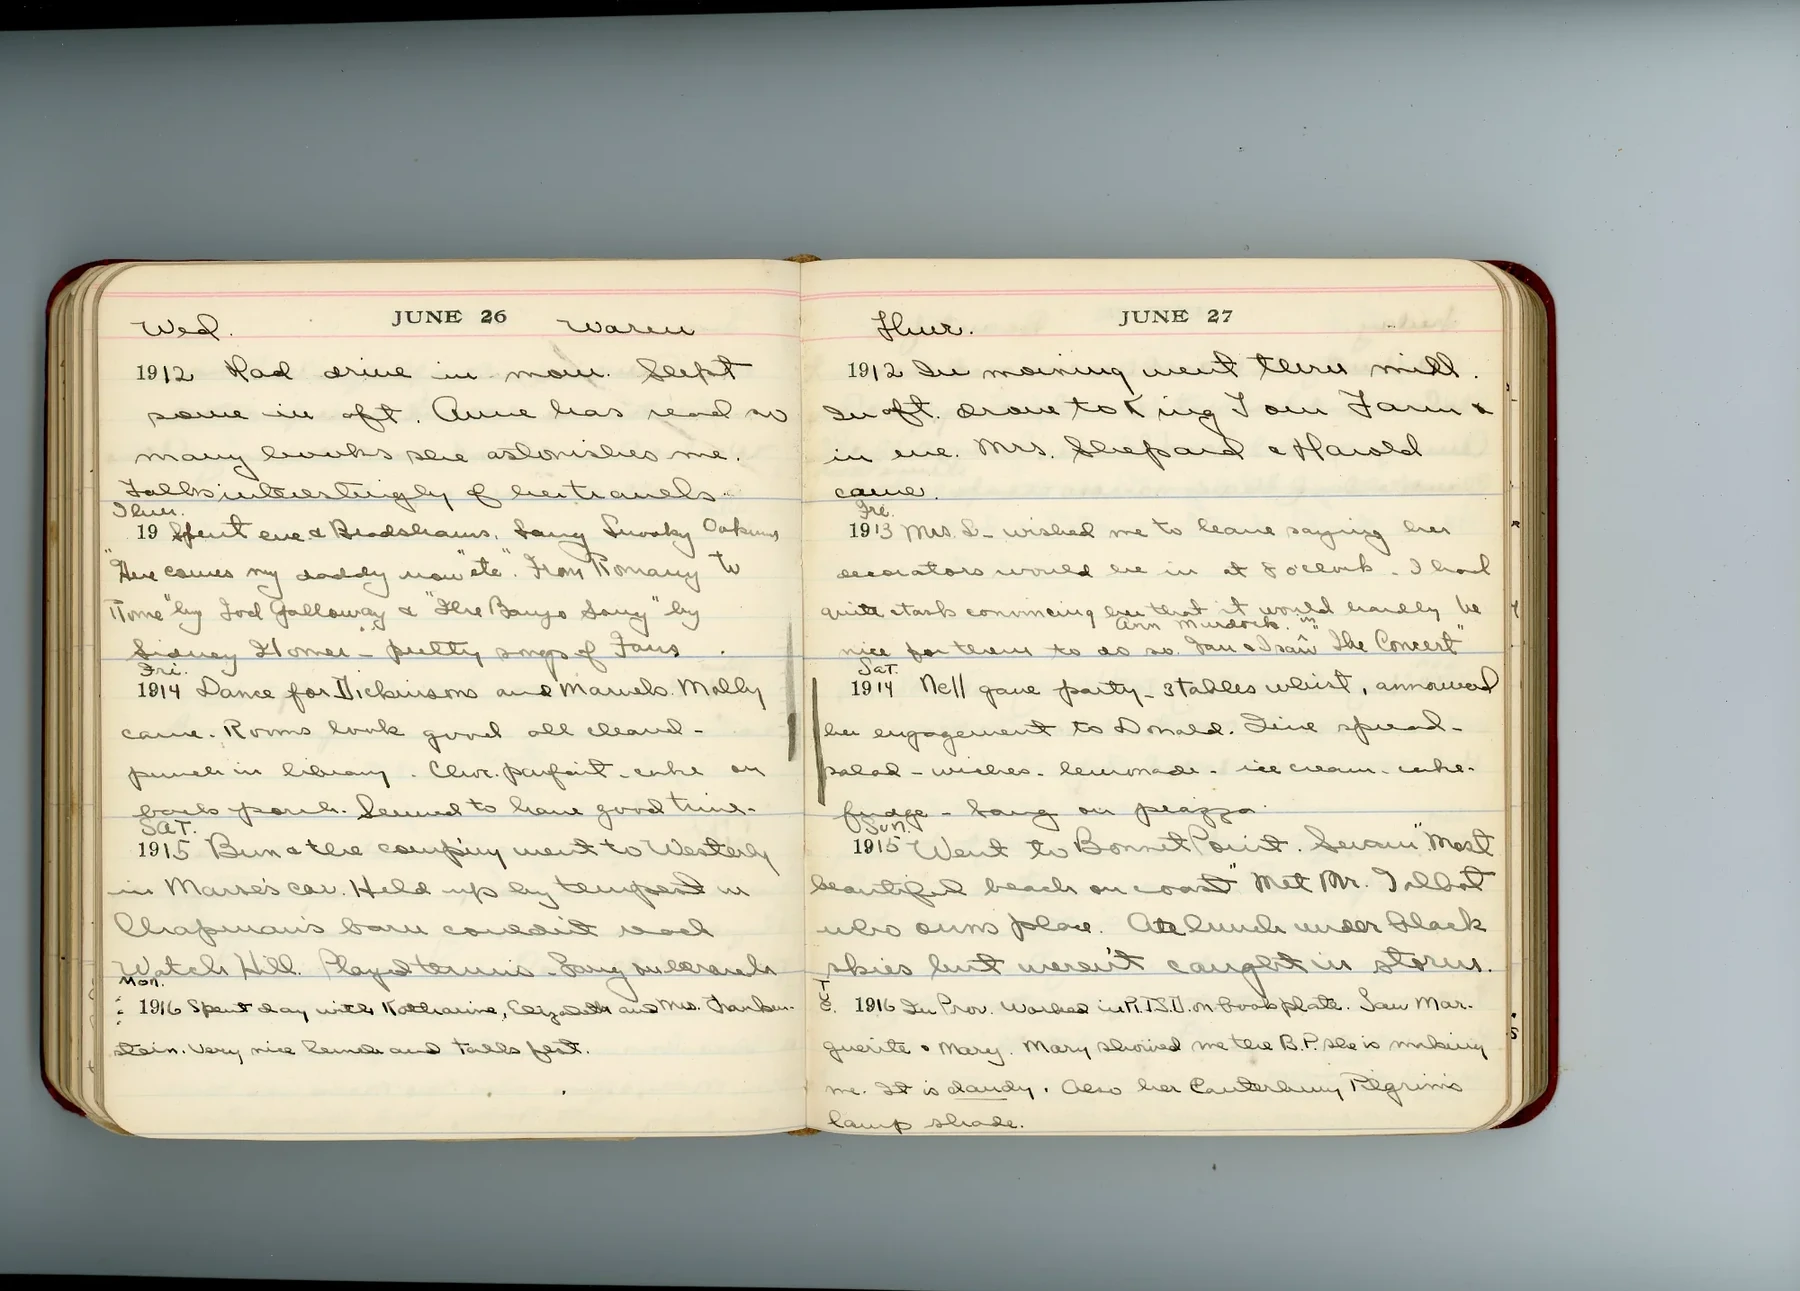 JUNE 26
Wed. Waren
1912 Had drive in morn. Slept
some in aft. Anne has read so
many books she astonishes me.
Talks interestingly of her travels.
Thur.
19 Spent eve & Bradshaws. Sang Snooky Ookums
"Here comes my daddy now" etc". From Romany to
Rome" by Tod Galloway & "The Banjo Song" by
Sidney Homer - pretty songs of Fans.
Fri.
1914 Dance for Dickinsons and Marvels. Molly
came. Rooms look good all cleaned -
punch in library. Choc. parfait - cake on
back porch. Seemed to have good time.
SAT.
1915 Bun & the company went to Westerly
in Marse's car. Held up by tempest in
Chapman's barn couldn't reach
Watch Hill. Played tennis - Sang on veranda
Mon.
1916 Spent day with Katharine, Elizabeth and Mrs.
stein. Very nice lunch and talk fest.
JUNE 27
Thur.
1912 In morning went thru mill.
In aft. drove to King Tom Farm &
in eve. Mrs. Shepard & Harold
came.
Fri.
1913 Mrs. S- wished me to leave saying her
decorators would be in at 8 o'clock. I had
quite a task convincing her that it would hardly be
Ann Murdock in
nice for them to do so. & I saw "The Concert"
Sat.
1914 Nell gave party - 3 tables whist, announced
her engagement to Donald. Fine spread -
salad - wiches - lemonade - ice cream - cake -
fudge - Sang on piazza.
Sun.
1915 Went to Bonnet Point. Swam "Most
beautiful beach on coast" Met Mr. Talbot
who owns place. Ate lunch under black
skies but weren't caught in storm.
Tue.
1916 In Prov. Worked in R.I.S.D. on bookplate. Saw Mar-
guerite & Mary. Mary showed me the B.P. she is making
me. It is dandy. Also her Canterbury Pilgrims
lamp shade.